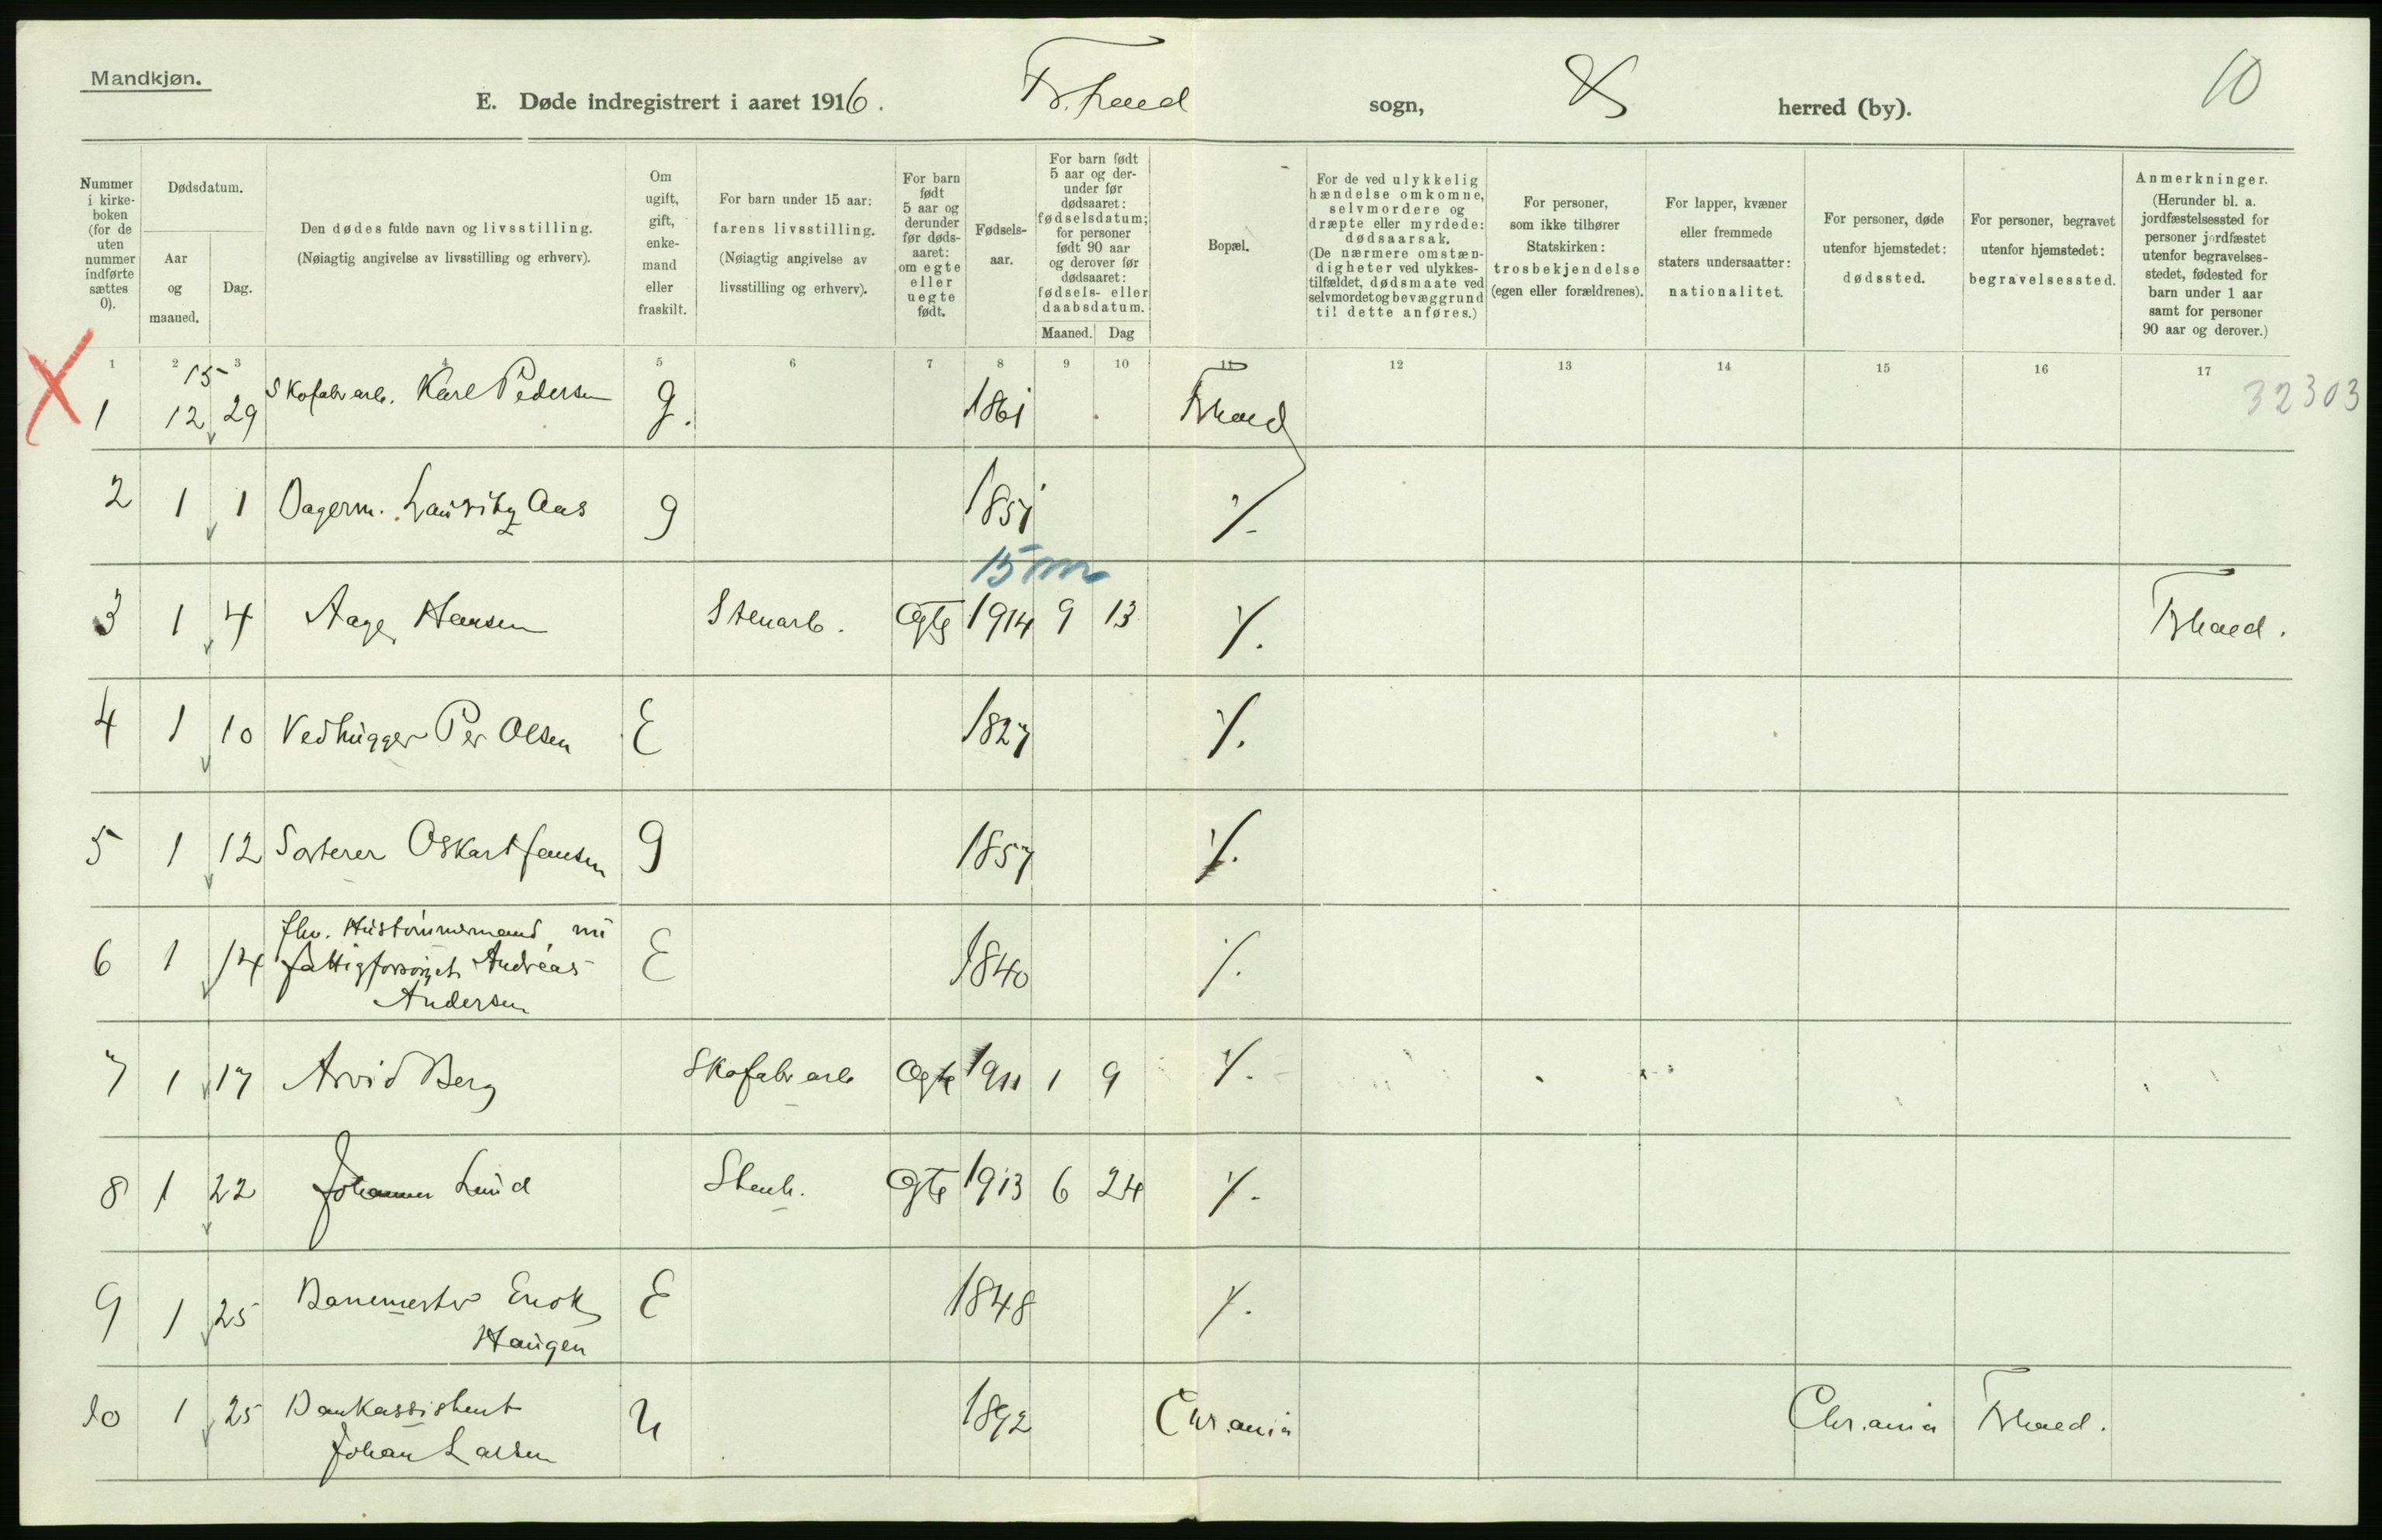 Mandkjøn.
E. Døde indregistrert i aaret 1916. Fr.hald sogn, herred (by). 10
Nummer i kirkeboken (for de uten nummer indførte sættes 0).
Dødsdatum.
Aar og maaned.
Dag.
Den dødes fulde navn og livsstilling. (Nøiagtig angivelse av livsstilling og erhverv).
Om ugift, gift, enkemand eller fraskilt.
For barn under 15 aar: farens livsstilling. (Nøiagtig angivelse av livsstilling og erhverv).
For barn født 5 aar og derunder før dødsaaret: om egte eller uegte født.
Fødselsaar.
For barn født 5 aar og derunder før dødsaaret: fødselsdatum; for personer født 90 aar og derover før dødsaaret: fødsels- eller daabsdatum.
Maaned. Dag
Bopæl.
For de ved ulykkelig hændelse omkomne, selvmordere og dræpte eller myrdede: dødsaarsak. (De nærmere omstændigheter ved ulykkestilfældet, dødsmaate ved selvmordet og bevæggrund til dette anføres.)
For personer, som ikke tilhører Statskirken: trosbekjendelse (egen eller forældrenes).
For lapper, kvæner eller fremmede staters undersaatter: nationalitet.
For personer, døde utenfor hjemstedet: dødssted.
For personer, begravet utenfor hjemstedet: begravelsessted.
Anmerkninger. (Herunder bl. a. jordfæstelsessted for personer jordfæstet utenfor begravelsesstedet, fødested for barn under 1 aar samt for personer 90 aar og derover.)
1 2 3 4 5 6 7 8 9 10 11 12 13 14 15 16 17
X 15
1 12 29 Skofabr arb. Karl Pedersen g. 1861 Frhald 32303
2 1 1 Dagerm. Lauritz Aas g 1851 ⁒
15 m
3 1 4 Aage Hansen Stenarb. Egte 1914 9 13 ⁒ Frhald.
4 1 10 Vedhugger Per Olsen E 1827 ⁒
5 1 12 Sorterer Oskar Hansen g 1857 ⁒
6 1 14 fhv. Hustømmermand nu fattigforsørget Andreas Andersen E 1840 ⁒
7 1 17 Arvid Berg Skofabr arb Egte 1911 1 9 ⁒
8 1 22 Johannes Lund Stenh. Egte 1913 6 24 ⁒
9 1 25 Banemester Enok Haugen E 1848 ⁒
10 1 25 Bankassistent Johan Larsen U 1892 Chr.ania Chr.ania Frhald.